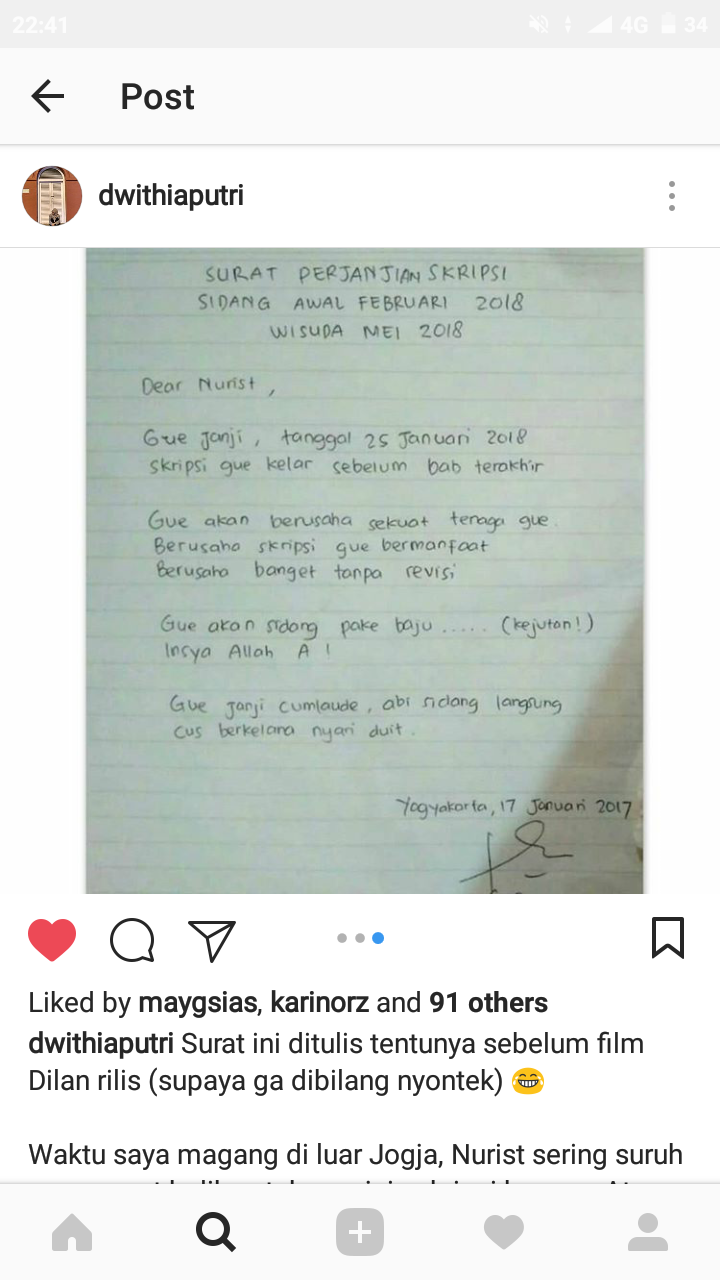 22:41
4G
34
Post
dwithiaputri
SURAT PERJANJIAN SKRIPSI
SIDANG AWAL FEBRUARI 2018
WISUDA MEI 2018
Dear Nurist,
Gue janji, tanggal 25 Januari 2018
skripsi gue kelar sebelum bab terakhir
Gue akan berusaha sekuat tenaga gue.
Berusaha skripsi gue bermanfaat
Berusaha banget tanpa revisi
Gue akan sidang pake baju ..... (kejutan!)
Insya Allah A !
Gue janji cumlaude, abi sidang langsung
cus berkelana nyari duit.
Yogyakarta, 17 Januari 2017
Liked by maygsias, karinorz and 91 others
dwithiaputri Surat ini ditulis tentunya sebelum film
Dilan rilis (supaya ga dibilang nyontek) 😂
Waktu saya magang di luar Jogja, Nurist sering suruh